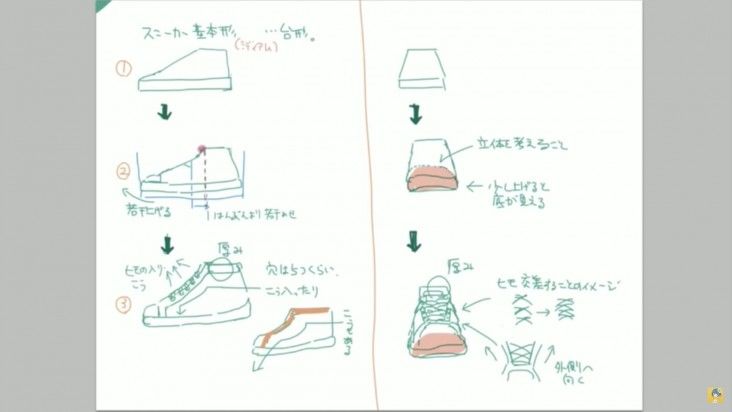 スニーカー基本形 …台形。
(ミディアム)
①
②
若干上げる
はんぶんより若干
③
厚み
穴は5つくらい。
こう入ったり
立体を考えること
少し上げると
底が見える
厚み
ヒモ交差することのイメージ
外側へ
向く